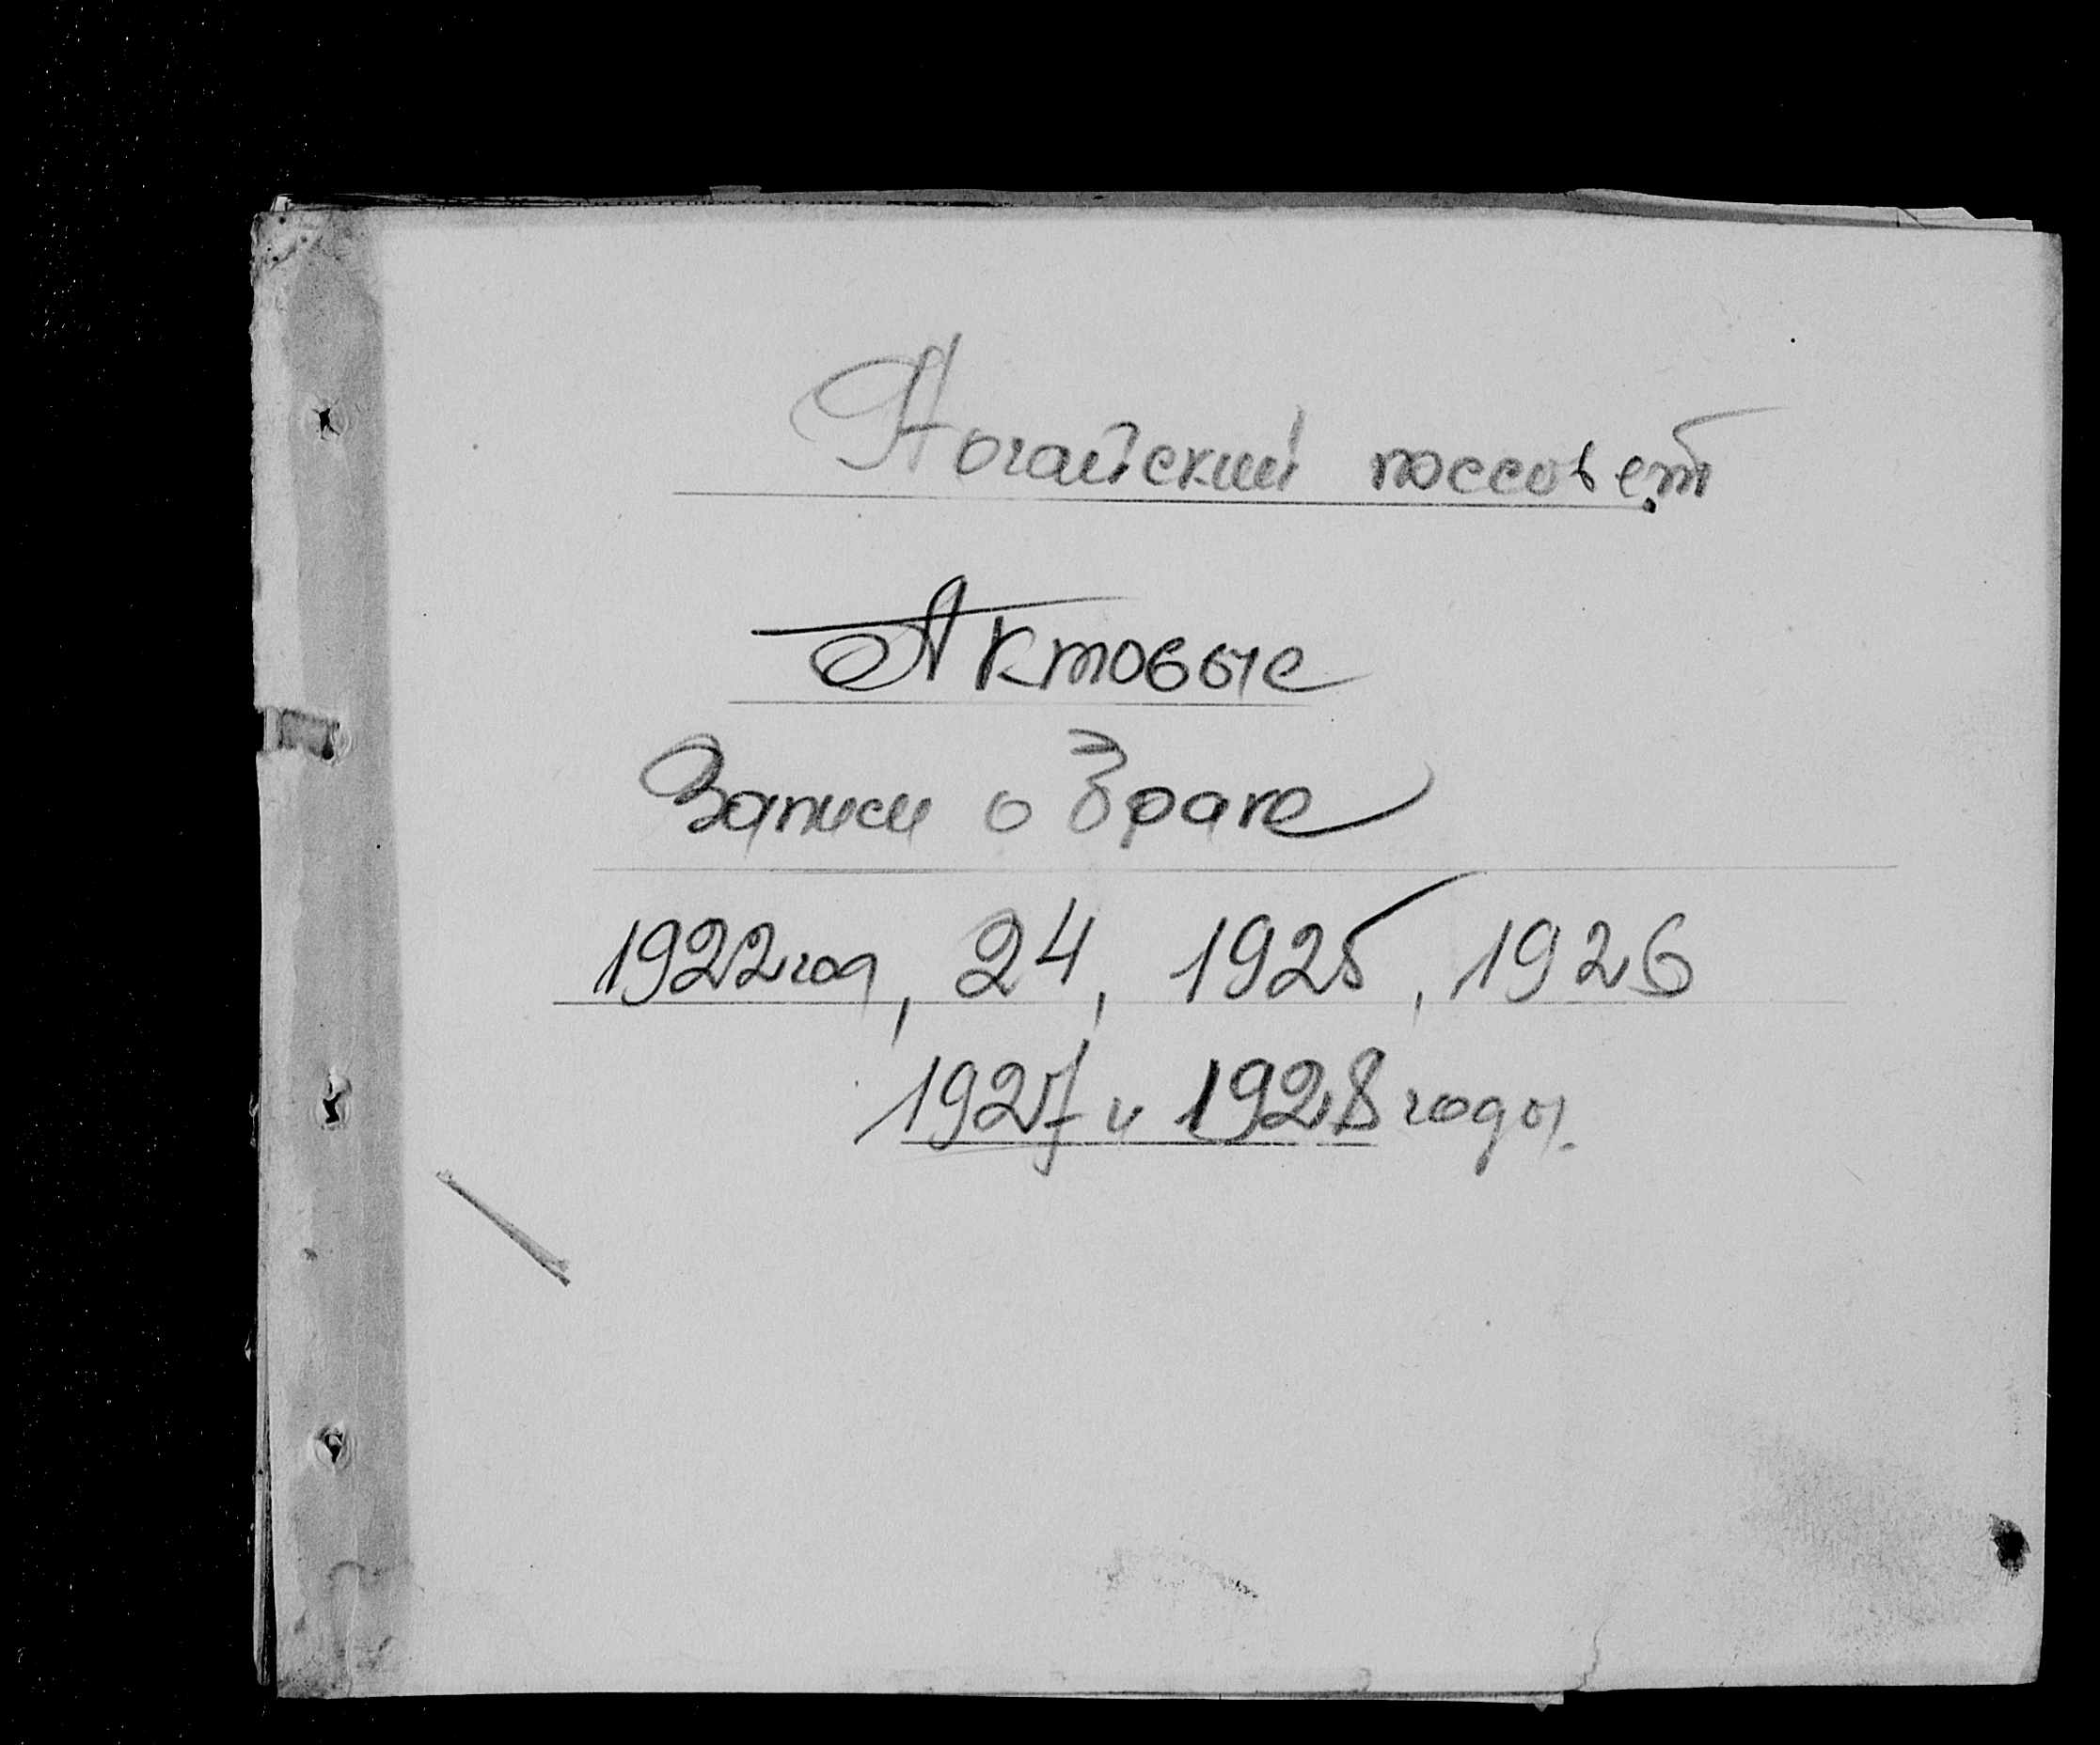 Ногайский поссовет
Актовые
Записи о браке
1922год, 24, 1925, 1926
1927 и 1928 годы.